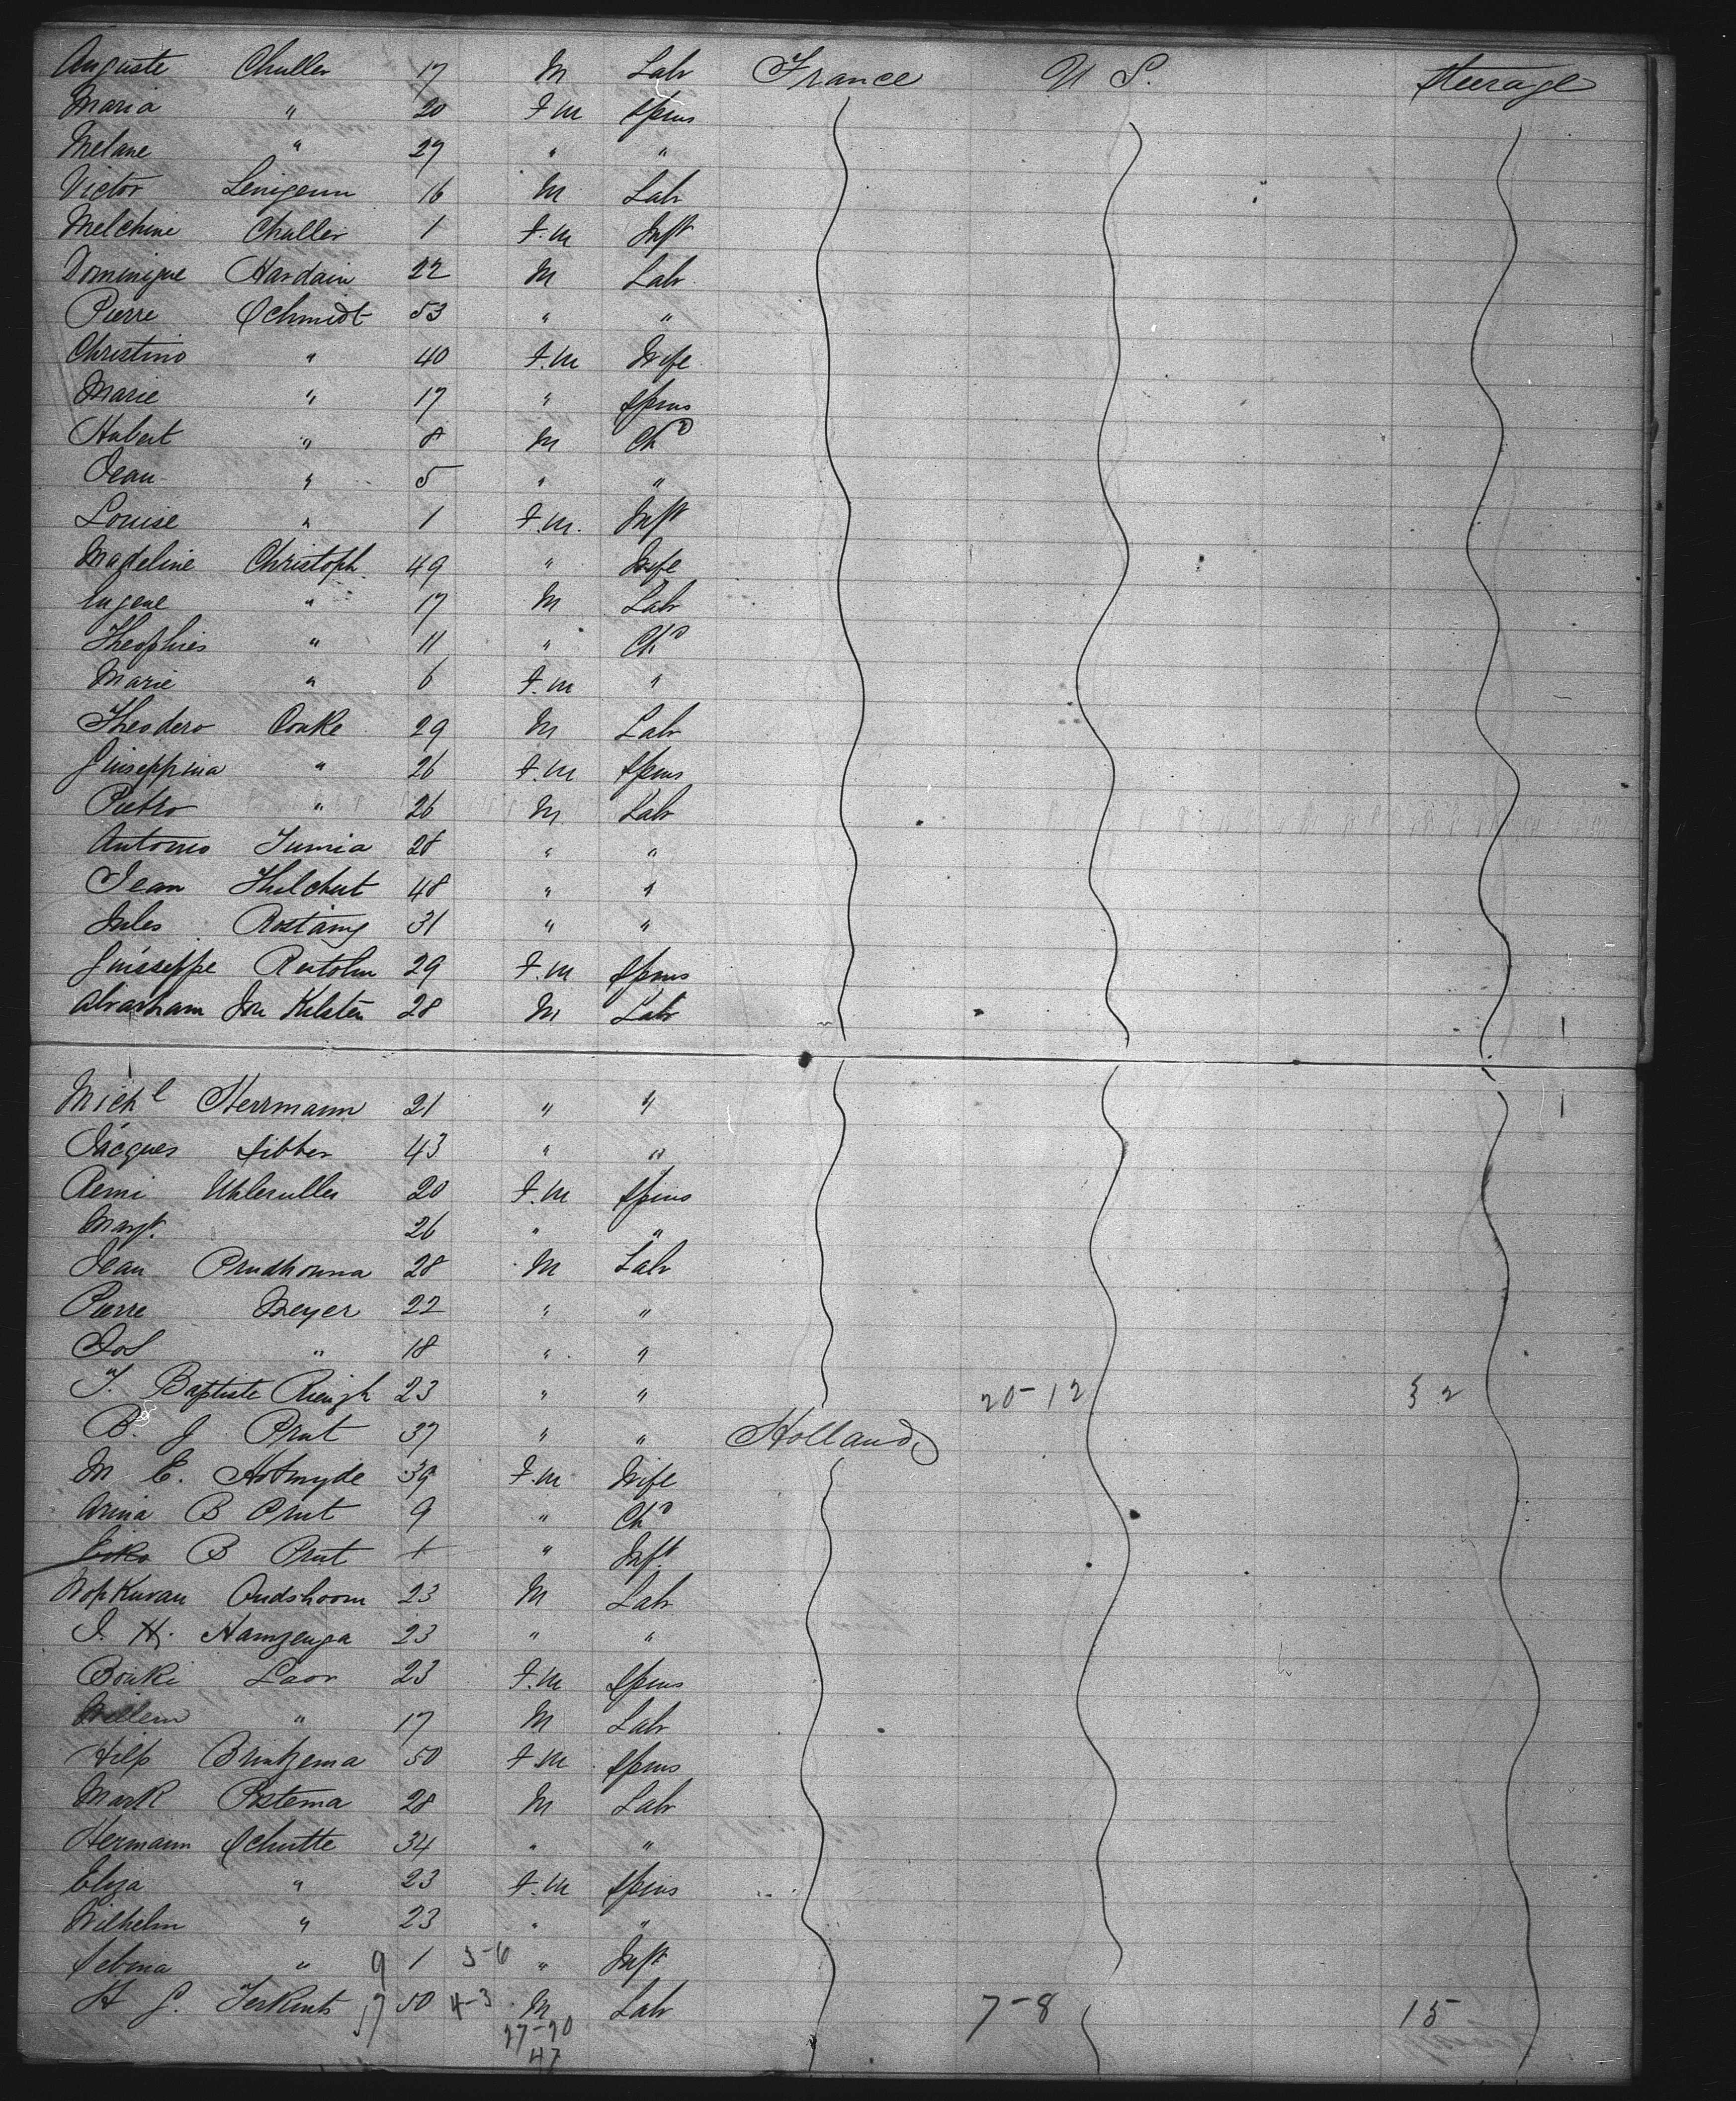 Auguste Chuller 17 M Labr France U S. Steerage
Maria " 20 F.m Spins
Melane " 27 " "
Victor 16 M Labr
Melchine Chuller 1 F.m Inft
Dominique Hardain 22 M Labr
Pierre Schmidt 53 " "
Christine " 40 F.m Wife
Marie " 17 " Spins
Hubert " 8 M Chd
Jean " 5 " "
Louise " 1 F.m. Inft
Madeline Christoph 49 " Wife
Eugene " 17 M Labr
Theophies " 11 " Chd
Marie " 6 F.m "
Theodero Conke 29 M Labr
Giuseppina " 26 F.m Spins
Pietro " 26 M Labr
Antonio Jumia 28 " "
Jean Hulchut 48 " "
Jules Rostaing 31 " "
Guisseppe 29 F.m Spins
Abraham 28 M Labr
Michl Herrmann 21 " "
Jacques Sibber 43 " "
Remi 20 F.m Spins
Margt. 26 " "
Jean Prudhomma 28 M Labr
Pierre Meyer 22 " "
Jos " 18 " "
J. Baptiste 23 " " 20-12 32
B. J. Prut 37 " " Holland
M E. Hotmyde 39 F.m Wife
Arina B Prut 9 " Chd
B Prut 1 " Inft
Oudshoorn 23 M Labr
J. H. Hamzenga 23 " "
Bouki Laor 23 F.m Spins
Willem " 17 M Labr
Hilp Brintzema 50 F.m Spins
Mark Postema 28 M Labr
Hermann Schutte 34 " "
Eliza " 23 F.m Spins
Wilhelm " 23 " "
Sebina " 9 1 3-6 " Inft
H J. Jerkints 37 50 4-3 M Labr 7-8 15
27-20
47